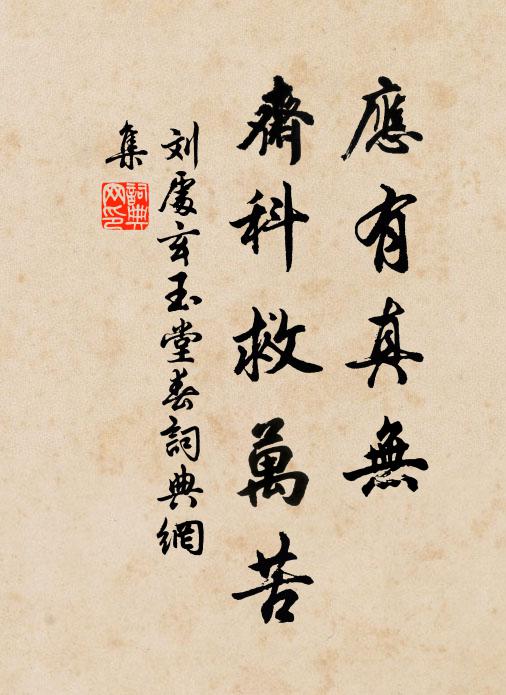 應有真無
齋科救萬苦
刘處玄玉堂春詞典網
集
詞典
网印